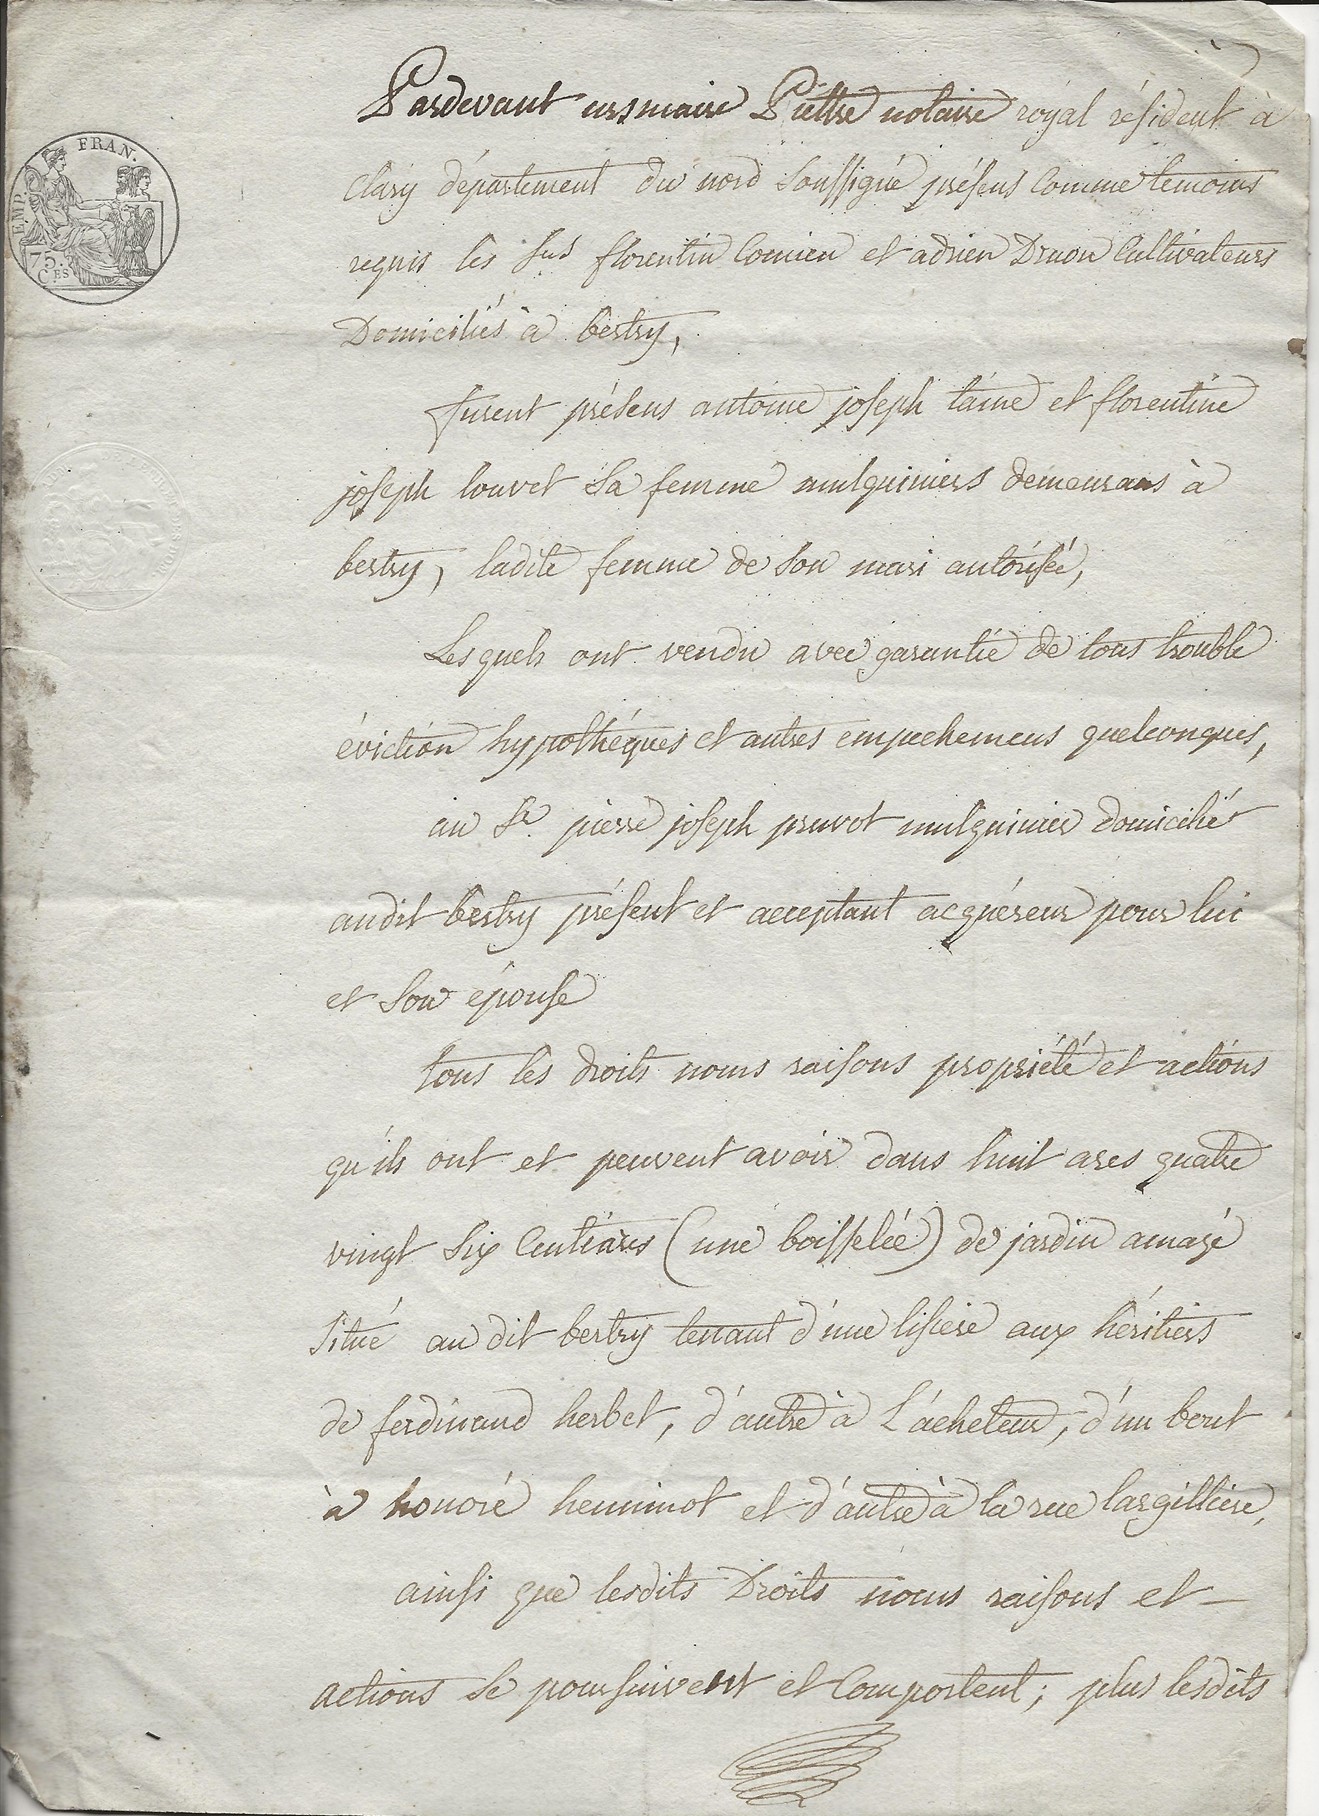 Pardevant ursmaire Piettre notaire royal résident à
EMP. FRAN.
75. CES
Clary département du nord Soussigné présens Comme témoins
requis les Srs florentin Comien et adrien Druon Cultivateurs
Domiciliés à bertry,
furent présens antoine joseph taine et florentine
joseph louvet Sa femme mulquiniers demeurans à
bertry, ladite femme de Son mari autorisée,
Lesquels ont vendu avec garantie de tous trouble
éviction hypothéques et autres empechemens quelconques,
au Sr. pierre joseph pruvot mulquinier domicilié
audit bertry présent et acceptant acquéreur pour lui
et Son épouse
tous les droits noms raisons propriété et actions
qu'ils ont et peuvent avoir dans huit ares quatre
vingt Six Centiares (une boisselée) de jardin amazé
Situé au dit bertry tenant d'une lisiere aux héritiers
de ferdinand herbet, d'autre à L'acheteur, d'un bout
à honoré henninot et d'autre à la rue largilliere,
ainsi que lesdits Droits noms raisons et —
actions Se poursuivent et Comportent; plus lesdits